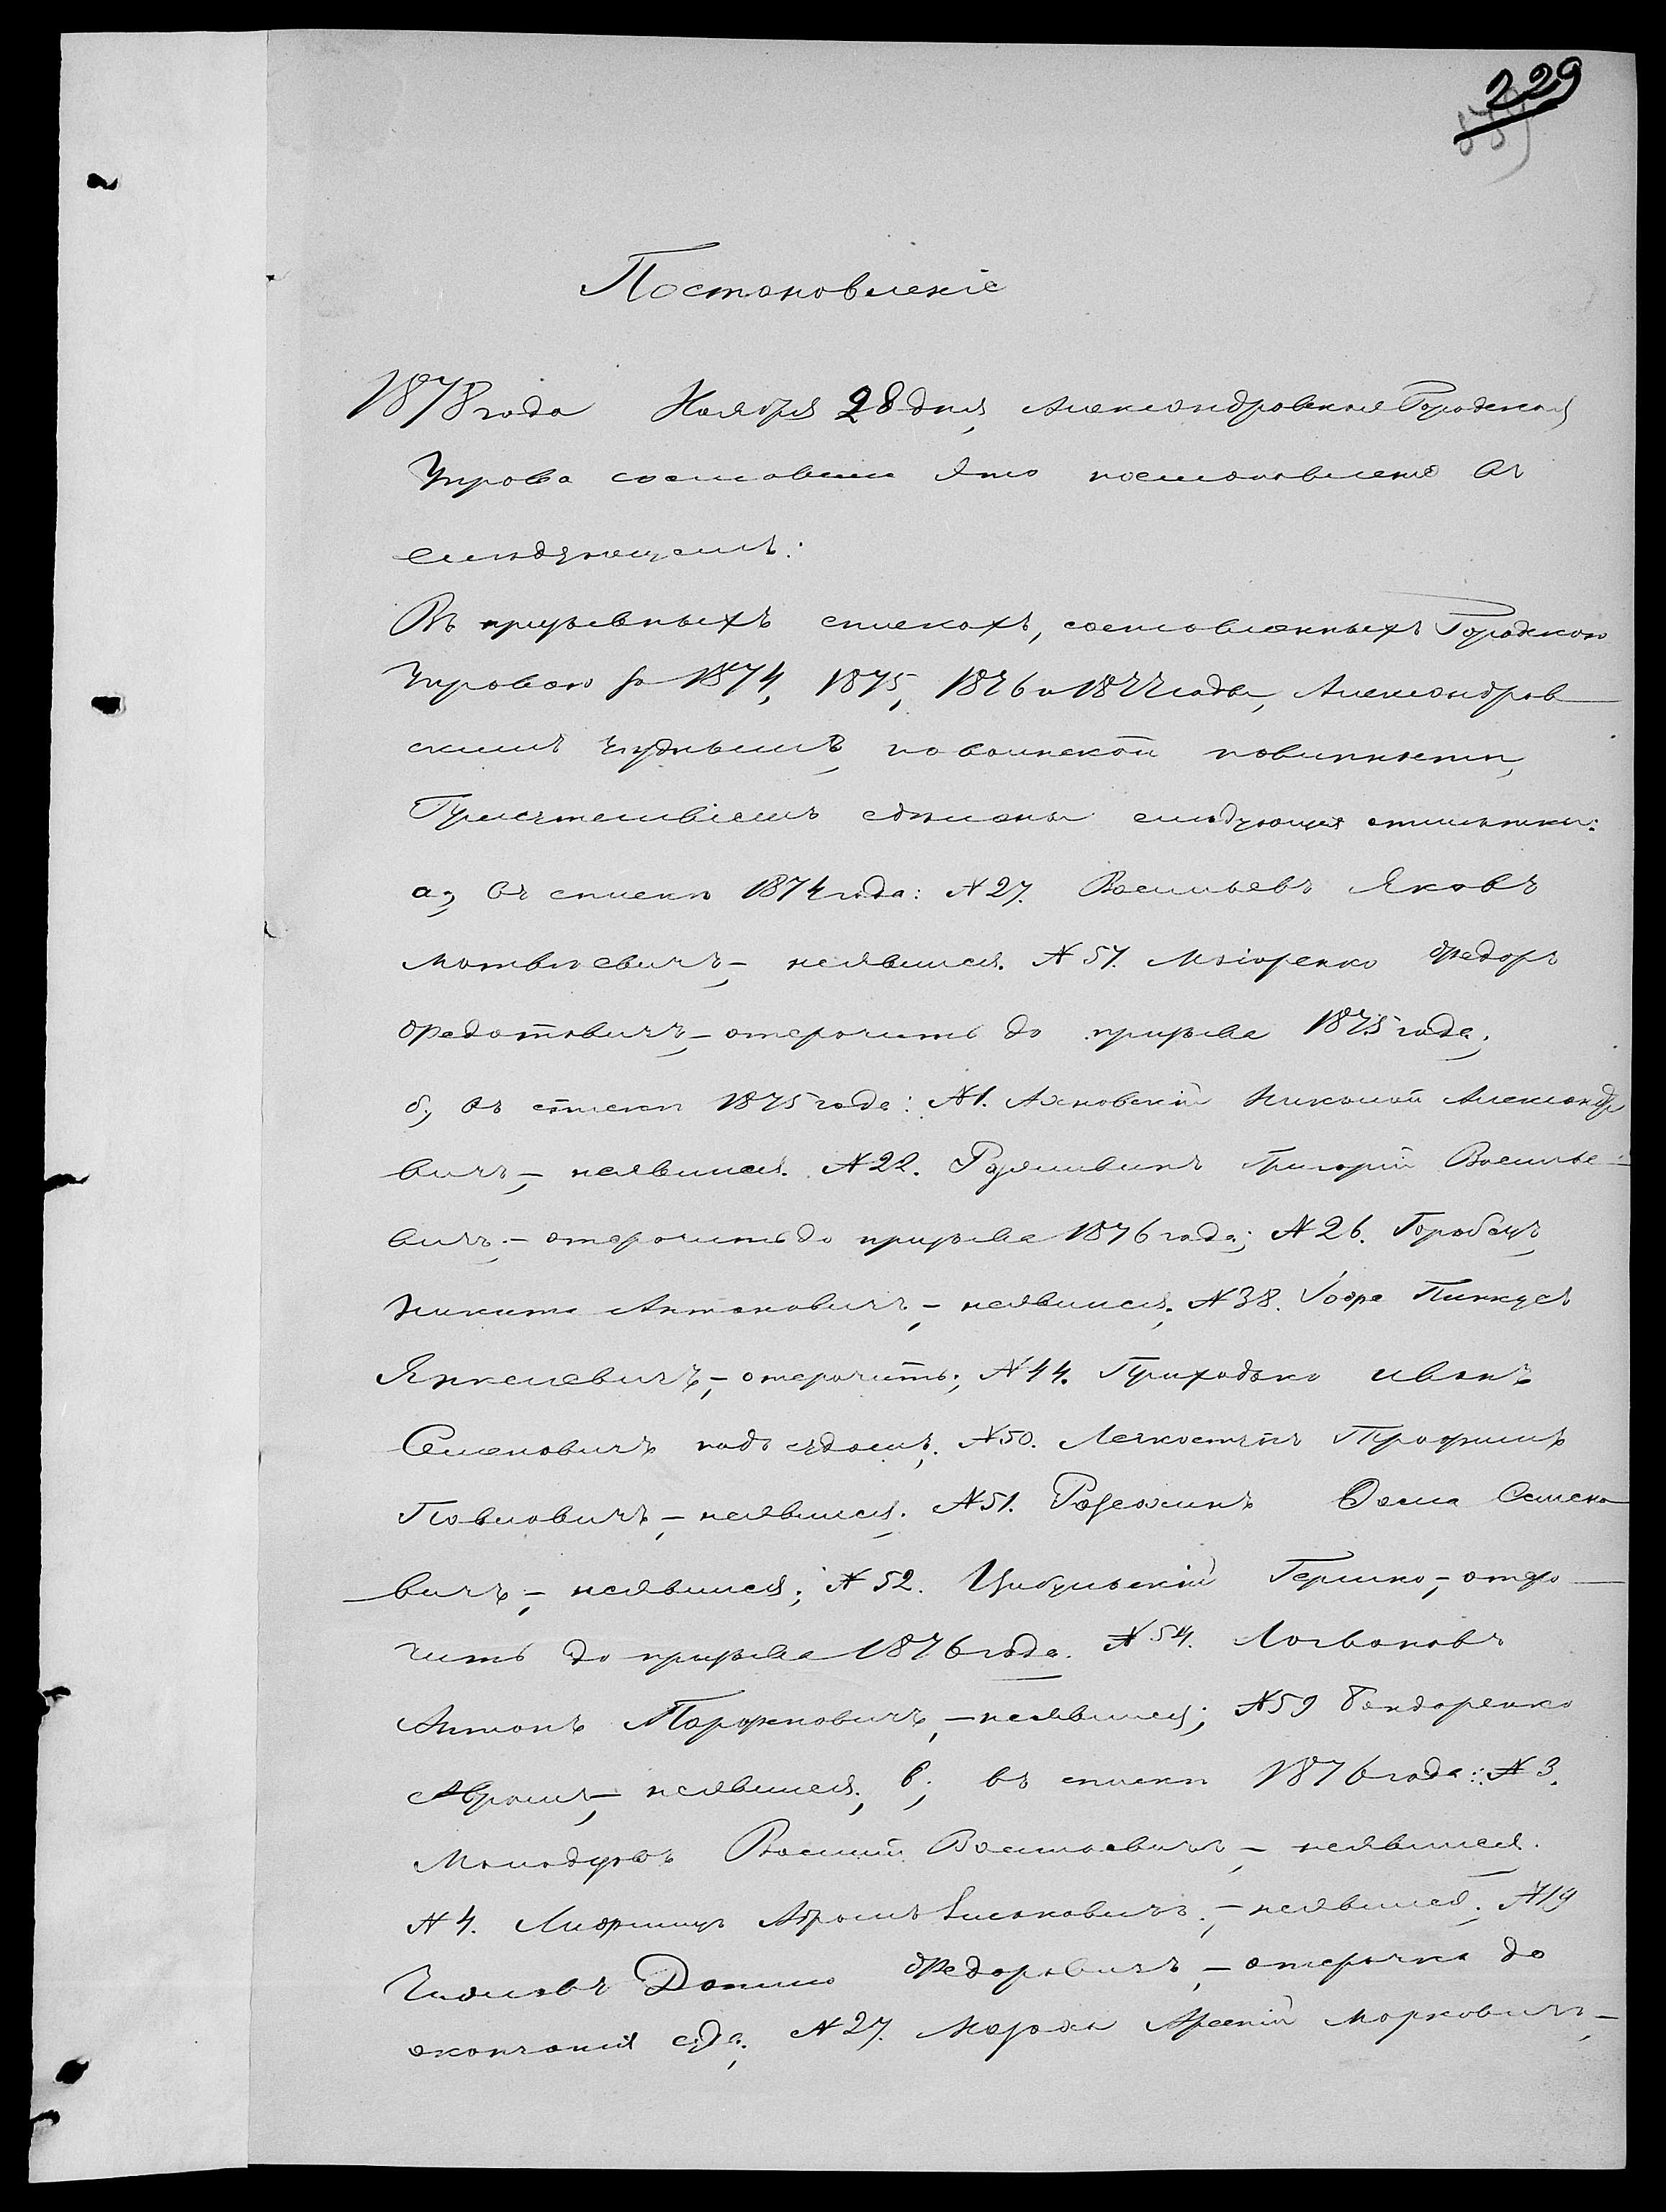 229
Постановленіе
1878 года Ноября 28 дня, Александровская Городская
Управа составили это постановленіе въ
слѣдующемъ:
Въ призывныхъ спискахъ, составленныхъ Городскою
Управою за 1874, 1875, 1876 и 1877 годы, Александров
скимъ уѣзднымъ, по воинской повинности,
Присутствіемъ сдѣланы слѣдующія отмѣтки:
а, въ спискѣ 1874 года: № 27. Васильевъ Яковъ
Матвѣевичъ, – неявился. № 57. Федоръ
Федотовичъ, – отсрочить до призыва 1875 года;
б, въ спискѣ 1875 года: № 1. Николай Александро
вичъ, – неявился. № 22. Григорій Василье-
вичъ, – отсрочить до призыва 1876 года; № 26. Горобецъ
Никита Антоновичъ, – неявился; № 38. Пинкусъ
Янкелевичъ, – отсрочить; № 44. Приходько Иванъ
Семеновичъ подъ судомъ; № 50. Трофимъ
Павловичъ, – неявился. № 51. Семено
вичъ, – неявился; № 52. Цибульскій Гершко, – отсро
чить до призыва 1876 года. № 54. Логвановъ
Антонъ Парфеновичъ, – неявился; № 59 Бондаренко
Аврамъ, – неявился; в, въ спискѣ 1876 года: № 3.
Василій Васильевичъ, – неявился.
№ 4. Лифшицъ Абрамъ – неявился. № 19
Данило Федоровичъ, – отсрочка до
окончанія суда; № 27. Арсеній Марковичъ, –